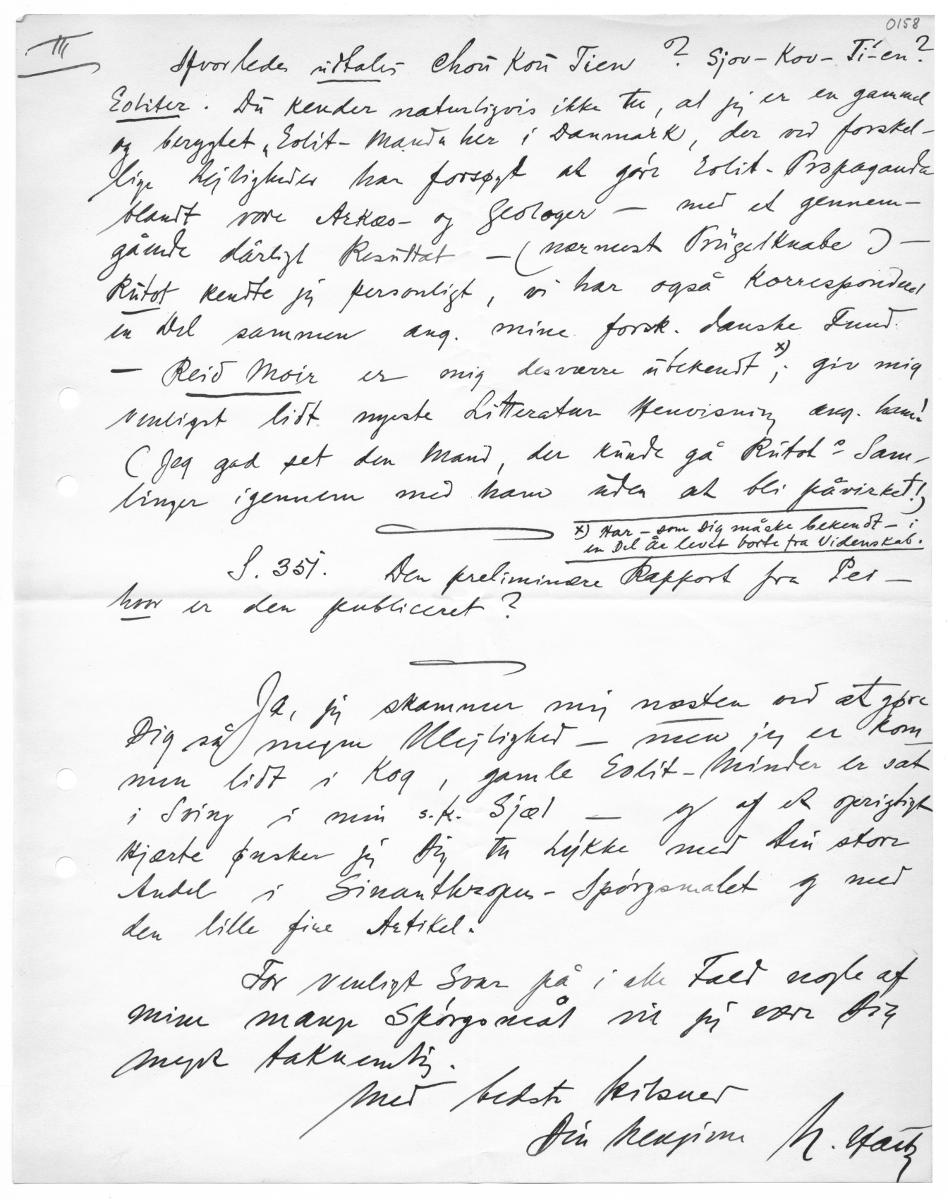 0158
III
Hvorledes udtales Choú Koú Tien ? Sjov-Kov-Ti-en?
Eoliter. Dú kender naturligvis ikke til, at jeg er en gammel
og berygtet "Eolit-Mand" her i Danmark, der ved forskel-
lige Lejligheder har forsøgt at göre Eolit-Propaganda
blandt vore Arkæo- og Geologer — med et gennem-
gående dårligt Resúltat — (nærmest Prügelknabe) —
Rútot kendte jeg personligt, vi har også Korresponderet
en Del sammen ang. mine forsk. danske Fund.
— Reid Moir er mig desværre úbekendt x); giv mig
venligst lidt nyeste Litteratur Henvisning ang. ham!
(Jeg gad set den Mand, der kúnde gå Rútot's Sam-
linger igennem med ham úden at bli påvirket!)
x) Har — som Dig måske bekendt — i
en Del År levet borte fra Videnskab.
S. 351. Den preliminære Rapport fra Pei —
hvor er den publiceret?
Ja, jeg skammer mig næsten ved at gøre
Dig så megen Ulejlighed — men jeg er kom-
men lidt i Kog, gamle Eolit-Minder er sat
i Sving i min s.k. Sjæl — og af et oprigtigt
Hjærte ønsker jeg Dig til Lykke med Din store
Andel i Sinanthropus-Spórgsmalet og med
den lille fine Artikel.
For venligt Svar på i alle Fald nogle af
mine mange Spórgsmål vil jeg være Dig
meget taknemlig.
Med bedste Hilsner
Din hengivne N. Hartz